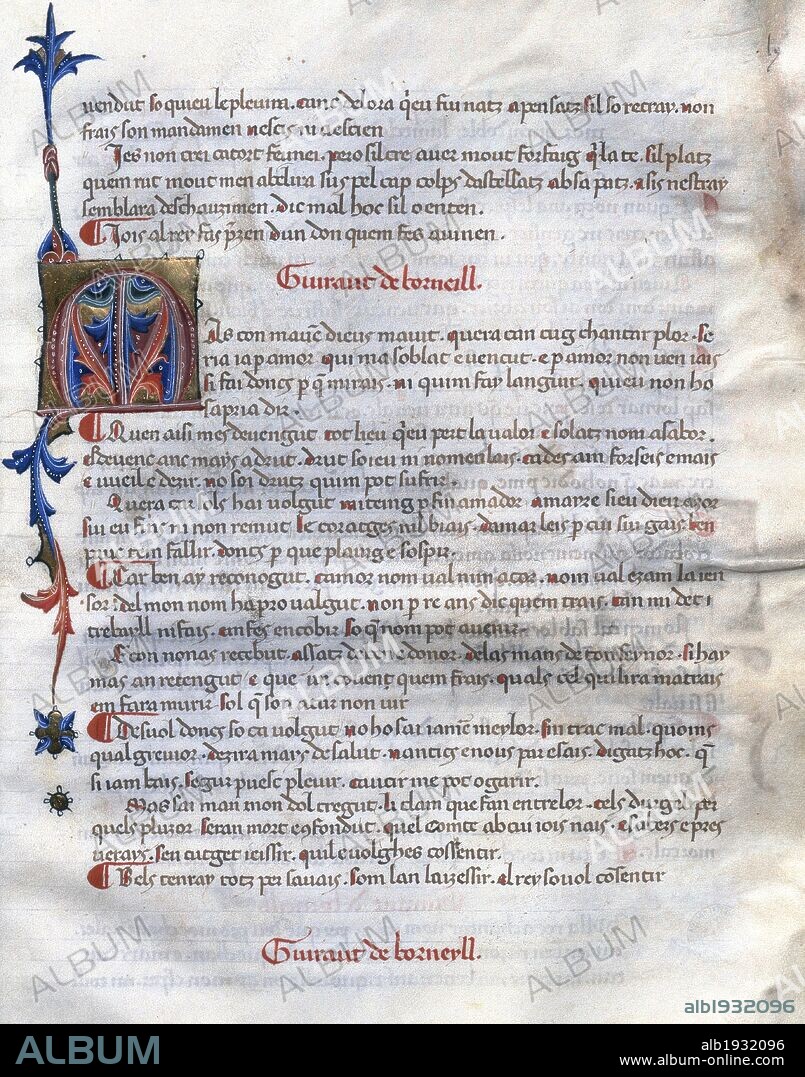 uendut so quieu le pleuim. canc delora q̄eu fui natz apensatz sil so retray. non
frais son mandamen nescis ni descien
Jes non crei catort femei. pero sil cre auer mout forfaig q̄la te. sil platz
quem rat mout men abelira sus pel cap colps dastellatz absa patz. asis nestray
semblara deschauzimen. dic mal hoc sil o enten.
Iois al rey fas p̄zen dun don quem fes auinen.
Guiraut de borneill.
As con mauē dieus mauit. quera can cug chantar plor. se
ria ia p amor qui ma soblat e uencut. e p amor non uen iais
si fai doncs p q̄ mirais. ni quim fay languir. quieu non ho
sapria dir.
Quen aisi mes deuengut tot lieu q̄eu pert la ualor e solatz nom a sabor.
esdeuenc anc mays a drut. drut soi eu ni nomen lais. ades am fort e mais
e uueil e dezir. no soi drutz quim pot sufrir.
Quera cui sols hai uolgut mi teing p fin amador
sui eu fis ni non remut le coratges ni l biais. damar leis p cui sui gais ben
pauc tem fallir. doncs p que plaing e sospir.
Car ben ay reconogut. camor nom ual nim acor. nom ual ezam la ien
sor. del mon nom ha pro ualgut. non p re ans dic quem trais. can mi det i
trebayll ni fais. anfes encobir so q̄ nom pot auenir.
E con nonas recebut assatz de ben e donor. de las mans de ton seynor. si hay
mas an retengut e que ar couenc quem frais. quals cel quil ira matrais
em fara murir sol q̄ son acur non uir
De suol doncs fo ca uolgut. no ho sai iamē meylor. sin trac mal. quoms
qual greuior. dezira mays de salut. nantics e nous par esais. digatz hoc. q̄
si iam bais. segur puesc pleuir. cautir me pot o garir.
Mas sai man mon dol cregut. li clam que fan entre lor. cels durgel per
quels pluzor seran mort e confondut. quel comte ab cui iois nais. e sabers e pres
uerays. sen cutget ieissir. quil e uolghes cossentir.
Bels tenray totz per sauais. som lan laizessir. el rey so uol cōsentir
Guiraut de borneyll.
ALBUM
alb1932096
ALBUM
alb1932096
www.album-online.com